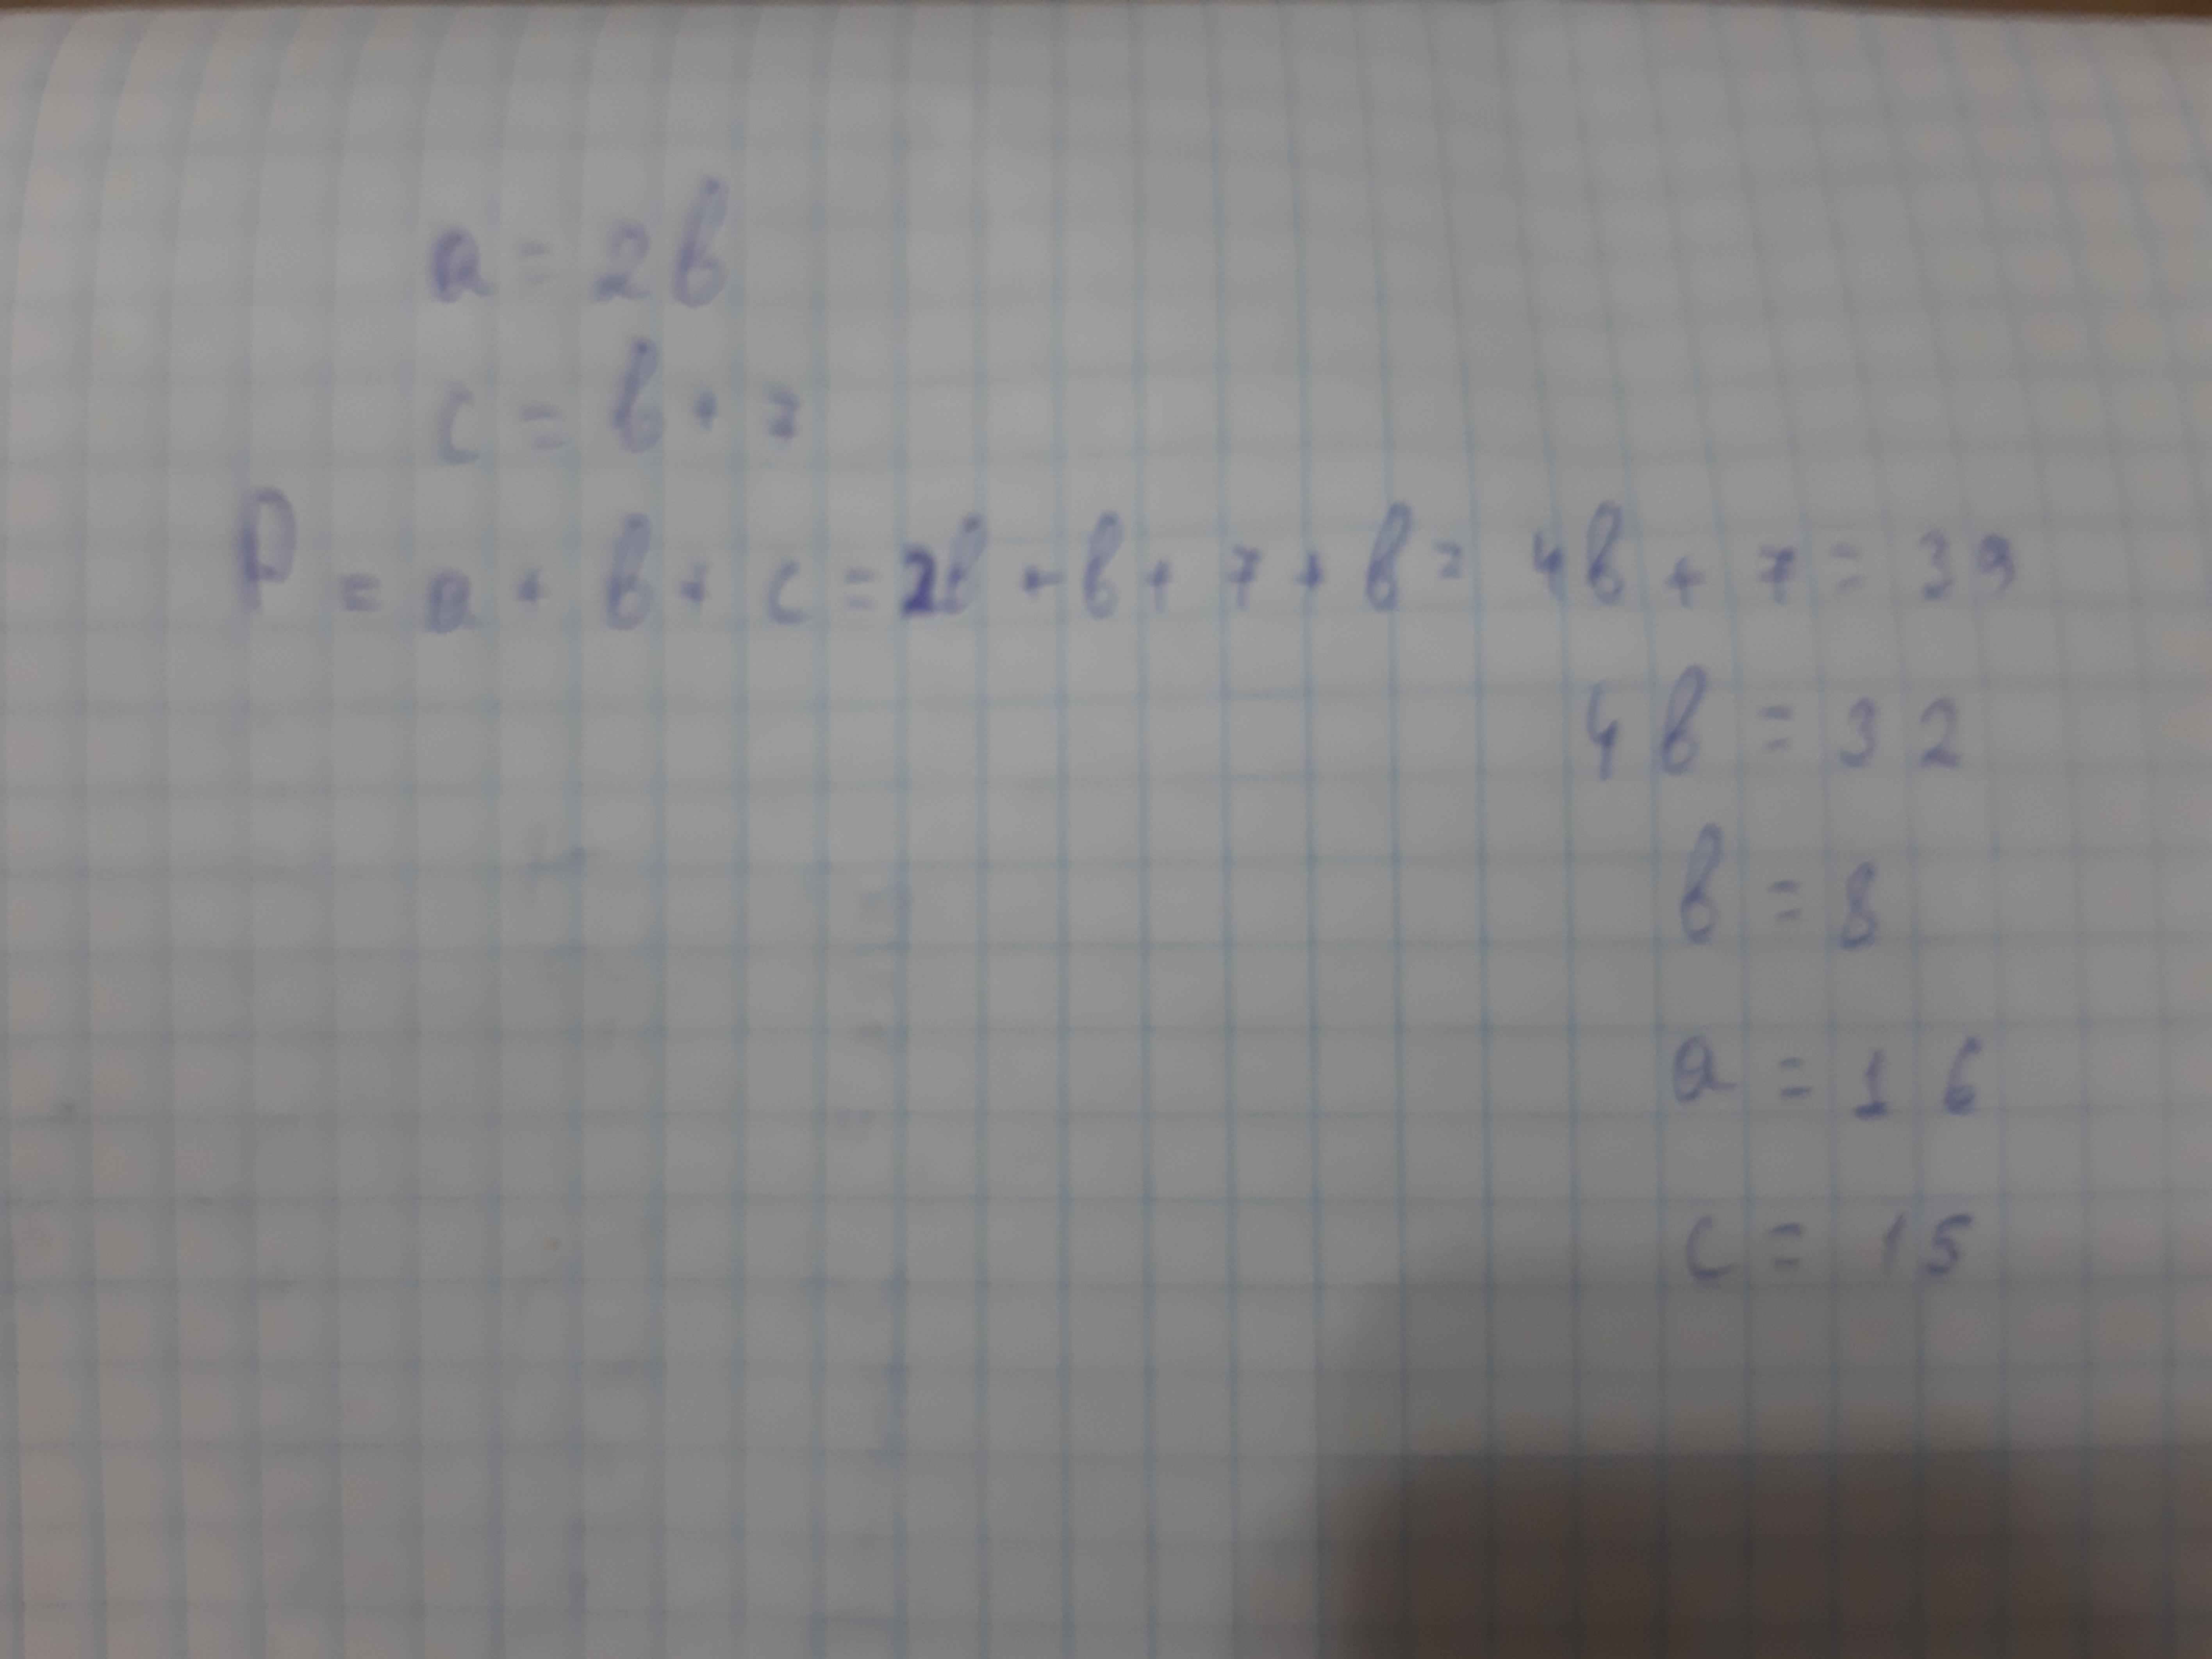 a = 2b
c = b + 7
P = a + b + c = 2b + b + 7 + b = 4b + 7 = 39
4b = 32
b = 8
a = 16
c = 15